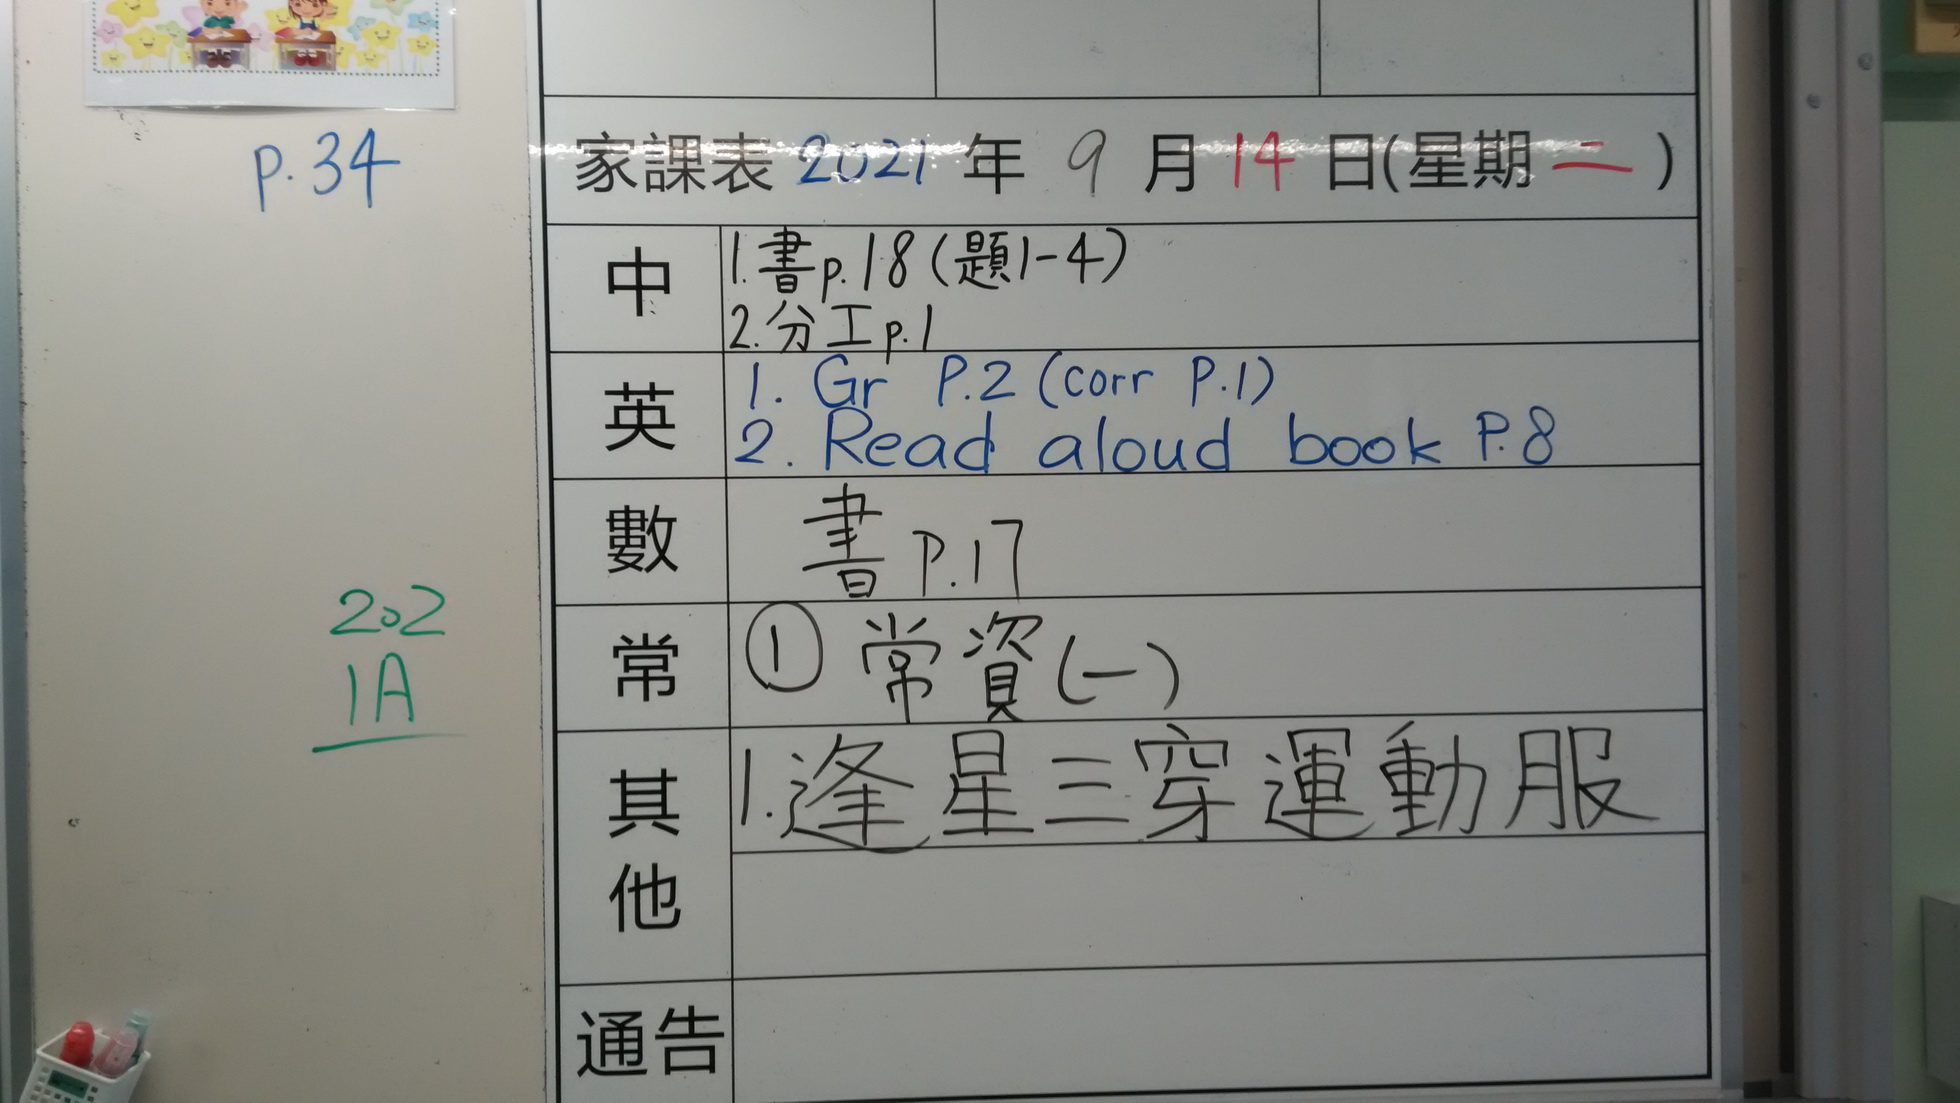 p.34
202
1A
家課表 2021 年 9 月 14 日(星期 二 )
中
1.書p.18(題1-4)
2.分工p.1
英
1. Gr P.2 (corr P.1)
2. Read aloud book P.8
數
書 P.17
常
① 常資(一)
其他
1.逢星三穿運動服
通告